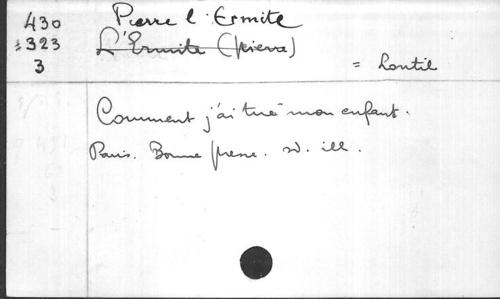 430 Pierre l'Ermite
323 L'Ermite (pierre)
3 = Loutil
Comment j'ai tué mon enfant.
Paris. Bonne presse. sd. ill.